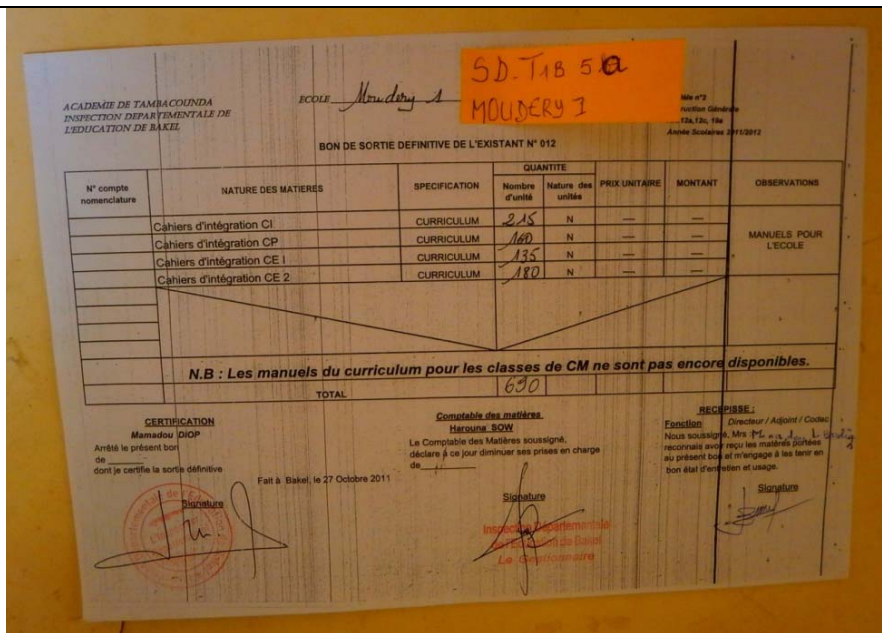 SD-T1B 5 a
MOUDERY I
ACADEMIE DE TAMBACOUNDA
INSPECTION DEPARTEMENTALE DE
L'EDUCATION DE BAKEL
ECOLE Moudery 1
n°2
Générale
,12a,12c, 19e
Année Scolaires 2011/2012
BON DE SORTIE DEFINITIVE DE L'EXISTANT N° 012
N° compte nomenclature NATURE DES MATIERES SPECIFICATION QUANTITE Nombre d'unité Nature des unités PRIX UNITAIRE MONTANT OBSERVATIONS
Cahiers d'intégration CI CURRICULUM 215 N — —
Cahiers d'intégration CP CURRICULUM 160 N — —
Cahiers d'intégration CE I CURRICULUM 135 N — —
Cahiers d'intégration CE 2 CURRICULUM 180 N — —
MANUELS POUR
L'ECOLE
N.B : Les manuels du curriculum pour les classes de CM ne sont pas encore disponibles.
TOTAL 690
CERTIFICATION
Mamadou DIOP
Arrêté le présent bon
de
dont je certifie la sortie définitive
Fait à Bakel, le 27 Octobre 2011
Signature
Comptable des matières
Harouna SOW
Le Comptable des Matières soussigné,
déclare à ce jour diminuer ses prises en charge
de
Signature
Inspection Départementale
de l'Education de Bakel
Le Gestionnaire
RECEPISSE :
Fonction Directeur / Adjoint / Codec
Nous soussigné, Mrs
reconnais avoir reçu les matières portées
au présent bon et m'engage à les tenir en
bon état d'entretien et usage.
Signature